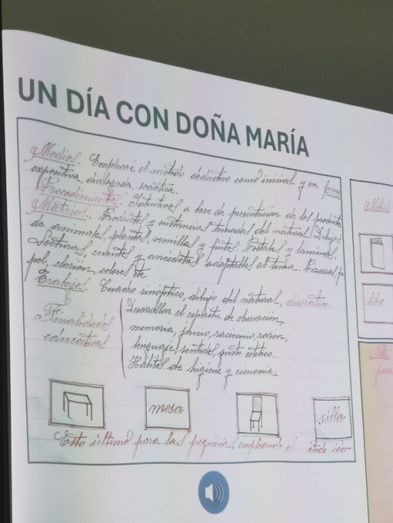 UN DÍA CON DOÑA MARÍA
Medios. Emplearé el método deductivo como inicial y en forma
expositiva, dialogada, socrática.
Procedimiento. Intuitivo a base de presentación de los productos
Material. Productos y sustancias tomadas del natural. Dibujos
de animales, plantas, semillas y frutos. Metales y láminas.
Lecturas, cuentos y anécdotas adaptables al tema. Pizarra, pa
pel, clarión, sobre
Trabajos. Cuadro sinóptico, dibujo del natural, decorativo.
Finalidades
educativas
Desarrollar el espíritu de observación,
memoria, juicio, raciocinio, razón,
lenguaje, sentidos, gusto estético.
Hábitos de higiene y economía.
mesa
silla
Esto último para las pequeñas, empleando el
Método